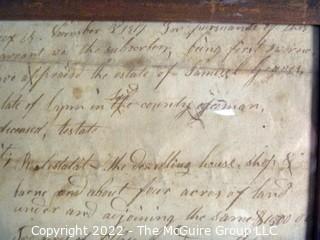 November 8 1817 In pursuance of this
warrant we the subscribers, being first sworn
have appraised the estate of Samuel
late of Lynn in the county yeoman,
deceased, testate
the dwelling house, shop &
barn and about four acres of land
under and adjoining the same $1500 00
Copyright 2022 - Camberg McGuire Group LLC